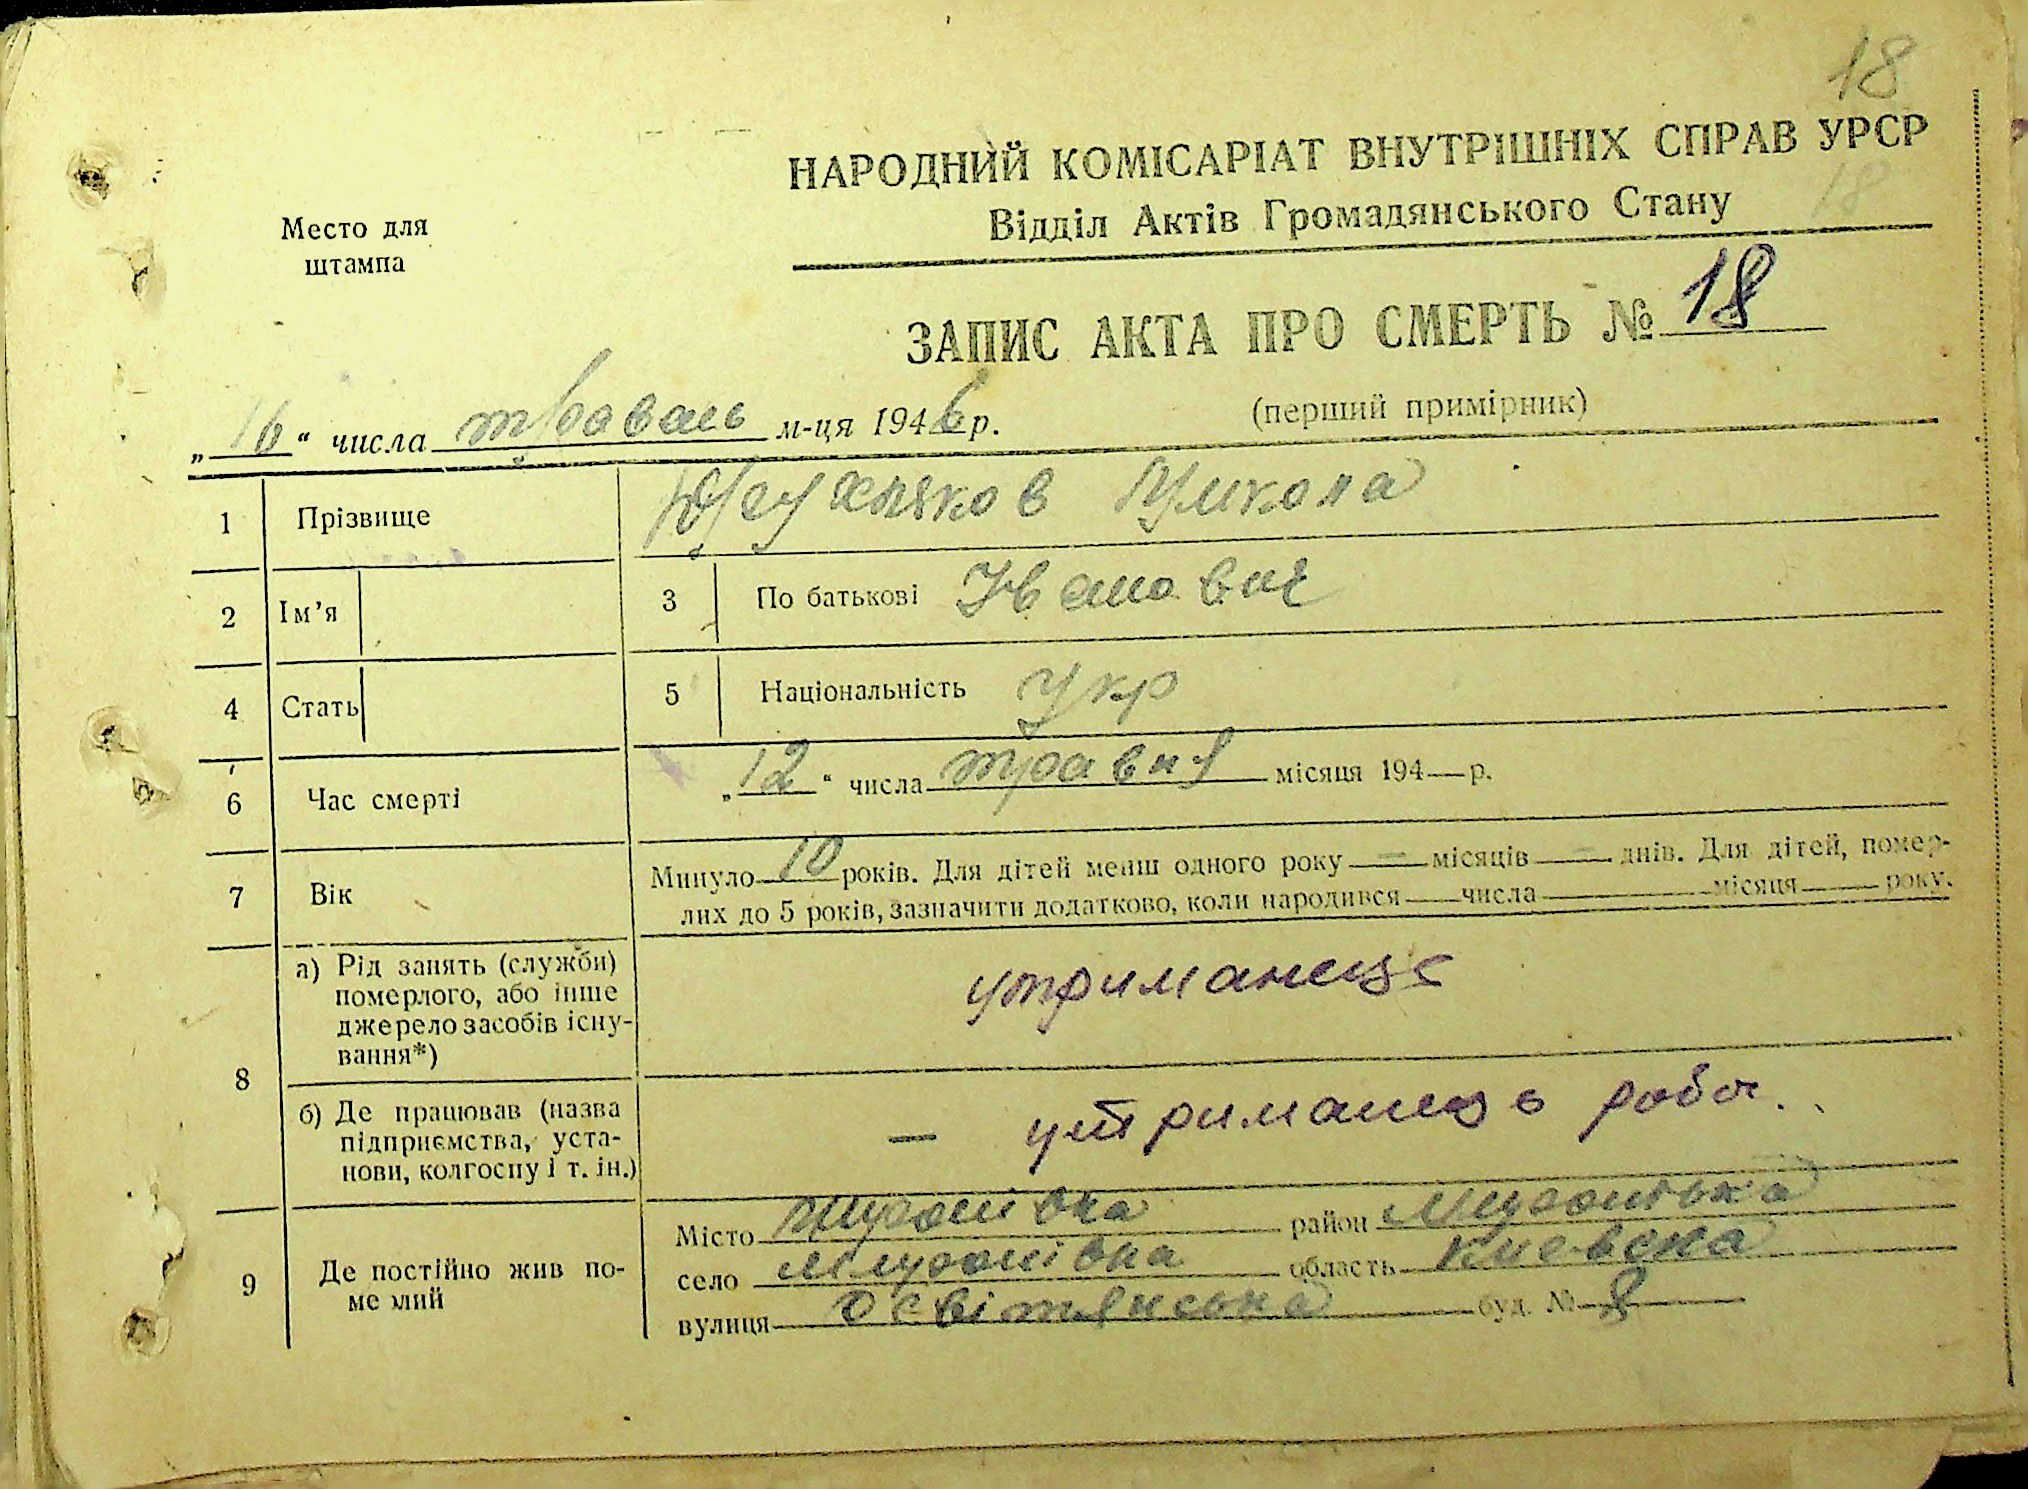 18
НАРОДНИЙ КОМІСАРІАТ ВНУТРІШНІХ СПРАВ УРСР
18
Відділ Актів Громадянського Стану
Место для
штампа
ЗАПИС АКТА ПРО СМЕРТЬ № 18
(перший примірник)
„16“ числа траваль м-ця 1946 р.
1 Прізвище Микола
2 Ім'я 3 По батькові Іванович
4 Стать 5 Національність Укр
6 Час смерті „12“ числа травня місяця 194— р.
7 Вік Минуло 10 років. Для дітей менш одного року — місяців — днів. Для дітей, помер-
лих до 5 років, зазначити додатково, коли народився числа місяця року.
8 а) Рід занять (служби)
померлого, або інше
джерело засобів існу-
вання*)
утриманець
б) Де працював (назва
підприємства, уста-
нови, колгоспу і т. ін.)
— утриманець робоч.
9 Де постійно жив по-
ме лий
Місто район
село область Киевска
вулиця буд. № 8